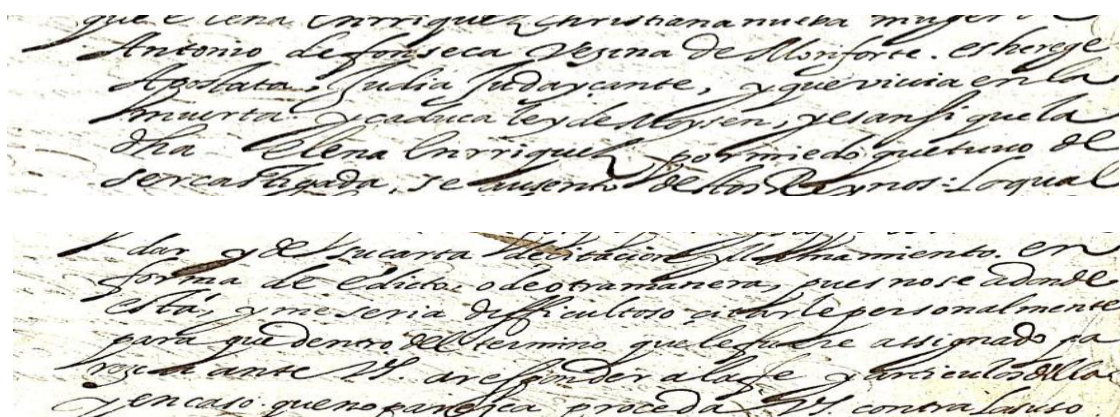 que elena enrriquez Christiana nueba muger de
Antonio de fonseca vezina de Monforte. es hereje
Apostata, Judia Judayçante, y que viuia en la
muerta y caduca ley de Moysen, y es ansi que la
dha Elena Enrriquez por miedo que tuvo de
ser castigada, se ausento destos Reynos: Lo qual
dar y de su carta de citacion y llamamiento. en
forma de edicto, o de otra manera, pues no se adonde
está, y me seria difficultoso çitarle personalmente
para que dentro del termino que le fuere assignado pa
rezca ante V.S. a responder a la fe y articulos della
y en caso que no paresca proceda V.S. contra